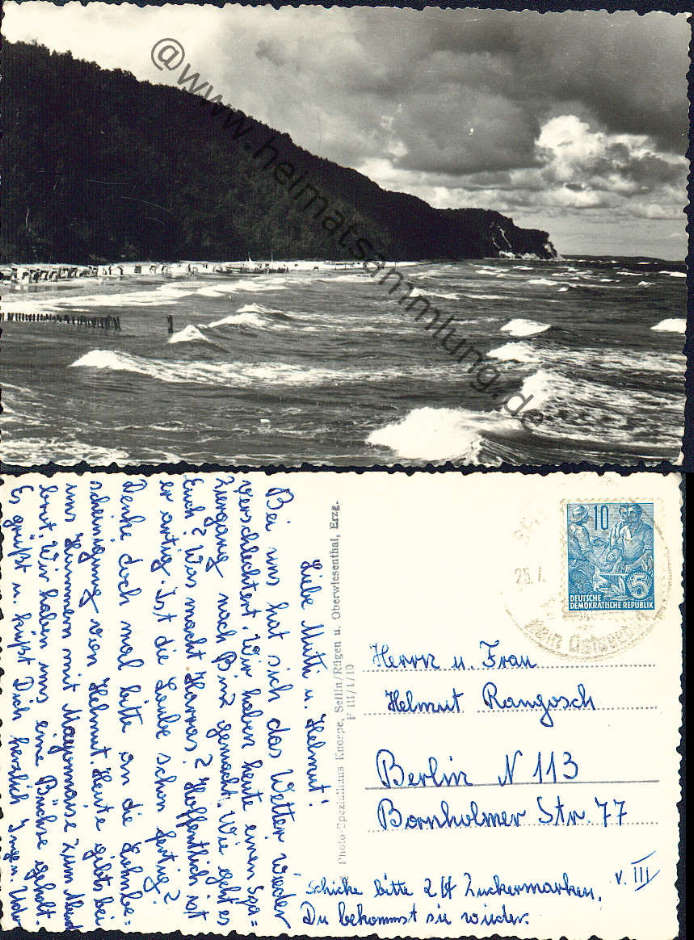 @www.heimatsammlung.de
Liebe Mutti u. Helmut!
Bei uns hat sich das Wetter wieder
verschlechtert. Wir haben heute einen Spa=
ziergang nach Binz gemacht. Wie geht es
Euch? Was macht Harras? Hoffentlich ist
er artig. Ist die Laube schon fertig?
Denke doch mal bitte an die Lohnbe=
scheinigung von Helmut. Heute gibts bei
uns Hummern mit Mayonnaise zum Abend
brot. Wir haben uns eine Büchse geholt.
Es grüßt u. küßt Dich herzlich Inge u. Udo
Photo-Spezialhaus Knospe, Sellin/Rügen u. Oberwiesenthal, Erzg.
10
5
DEUTSCHE
DEMOKRATISCHE REPUBLIK
25.7.
Herrn u. Frau
Helmut Rangosch
Berlin N 113
Bornholmer Str. 77
Schicke bitte 2 Zuckermarken,
Du bekommst sie wieder.
v. III